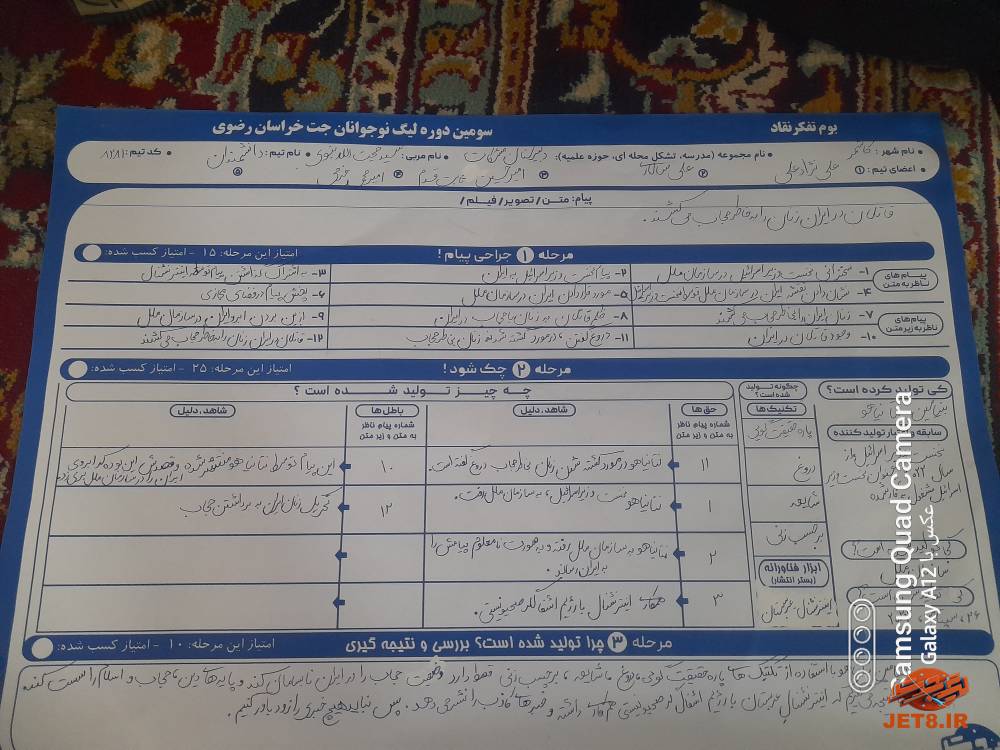 بوم تفکر نقاد
سومین دوره لیگ نوجوانان جت خراسان رضوی
نام شهر: کاشمر
نام مجموعه (مدرسه، تشکل محله ای، حوزه علمیه): دبیرستان
نام مربی: سید حجت الله
نام تیم: دانشمندان
کد تیم: ۸۲۸۱
اعضای تیم: ① علی نژاد علی ② علی ③ امیرحسین ④ امیر ⑤
پیام: متن/ تصویر/ فیلم/
قاتلان در ایران زنان را به خاطر حجاب می کشند.
مرحله ۱ جراحی پیام!
امتیاز این مرحله: ۱۵ - امتیاز کسب شده:
پیام های ناظر به متن
۱- سخنرانی نخست وزیر اسرائیل در سازمان ملل
۲- پیام نخست وزیر اسرائیل به ایران
۳- به اشتراک گذاشتن پیام توسط اینترنشنال
۴- نشان دادن نقشه ایران در سازمان ملل توسط نخست وزیر اسرائیل
۵- مورد قرار دادن ایران در سازمان ملل
۶- پخش پیام در فضای مجازی
پیام‌های ناظر به زیر متن
۷- زنان ایران را بخاطر حجاب می کشند
۸- ظلم قاتلان به زنان با حجاب در ایران
۹- از بین بردن ابرو ایران در سازمان ملل
۱۰- وجود قاتلان در ایران
۱۱- دروغ گفتن در مورد کشته شدن زنان بخاطر حجاب
۱۲- قاتلان در ایران زنان را بخاطر حجاب می کشند
مرحله ۲ چک شود!
امتیاز این مرحله: ۲۵ - امتیاز کسب شده:
کی تولید کرده است؟
سابقه و اعتبار تولید کننده
نخست وزیر اسرائیل از
سال ۲۰۲۲ نخست وزیر
اسرائیل مشغول به کار شده
سازمان ملل
چگونه تولید شده است؟
تکنیک‌ها
پاره حقیقت گویی
دروغ
شایعه
برچسب زنی
ابزار فناورانه
(بستر انتشار)
اینترنشنال عربستان
چه چیز تولید شده است ؟
حق‌ها
شماره پیام ناظر به متن و زیر متن
شاهد، دلیل
باطل‌ها
شماره پیام ناظر به متن و زیر متن
شاهد، دلیل
۱۱
نتانیاهو در مورد کشته شدن زنان بخاطر حجاب دروغ گفته است.
۱۰
این پیام توسط نتانیاهو منتشر شده و قصدش این بوده که ابروی ایران را در سازمان ملل ببرد
۱
نتانیاهو نخست وزیر اسرائیل، به سازمان ملل رفت.
۱۲
تحریک زنان ایران به برداشتن حجاب
۲
نتانیاهو به سازمان ملل رفته و به صورت نامعلوم پیامش را به ایران رساند.
۳
همکار اینترنشنال با رژیم اشغالگر صهیونیستی.
مرحله ۳ چرا تولید شده است؟ بررسی و نتیجه گیری
امتیاز این مرحله: ۱۰ - امتیاز کسب شده:
با استفاده از تکنیک ها پاره حقیقت گویی، دروغ، شایعه، برچسب زنی قصد دارد وضعیت حجاب را در ایران نابسامان کند و پایه های دین، حجاب و اسلام را سست کند
که اینترنشنال عربستان با رژیم اشغالگر صهیونیستی همکار داشته و خبرها کاذب را نشر می دهد. پس نباید هیچ خبری را زود باور کنیم.
Samsung Quad Camera
عکس با Galaxy A12
JET8.IR